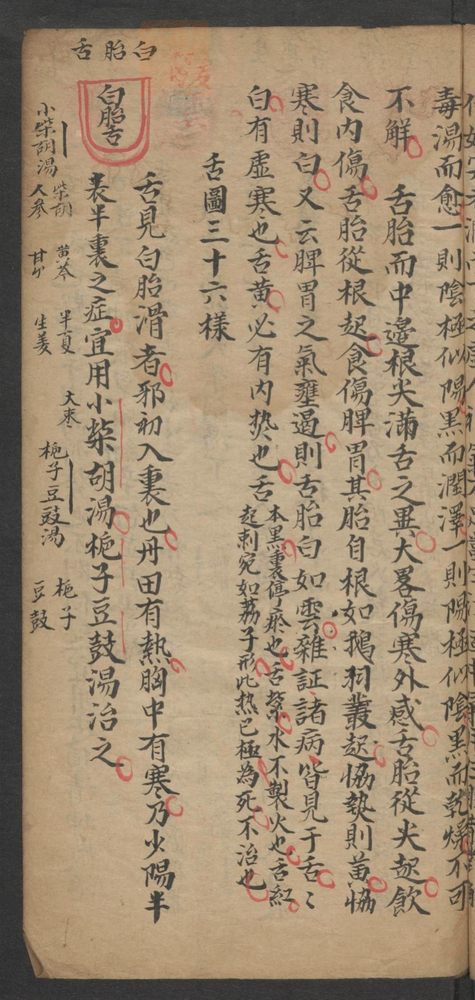 毒湯而愈一則陰極似陽黑而潤澤一則陽極似陰黑而乾燥不可
不觧　舌胎而中邉根尖滿舌之異大畧傷寒外感舌胎從尖起飲
食内傷舌胎從根起食傷脾胃其胎自根如鵝羽叢起恊熱則黄恊
寒則白又云脾胃之氣壅遏則舌胎白如雲雜証諸病皆見于舌〻
白有虚寒也舌黄必有内𤍠也舌
本黒裏停瘀也舌禁水不製火也舌紅
起刺宛如荔子形此热已極為死不治也
舌圖三十六樣
白胎舌
白胎舌
舌見白胎滑者邪初入裏也丹田有熱胸中有寒乃少陽半
表半裏之症宜用小柴胡湯梔子豆鼓湯治之
小柴胡湯
柴胡
人參
黄芩
甘艸
半夏
生姜
大枣
梔子豆豉湯
梔子
豆鼓